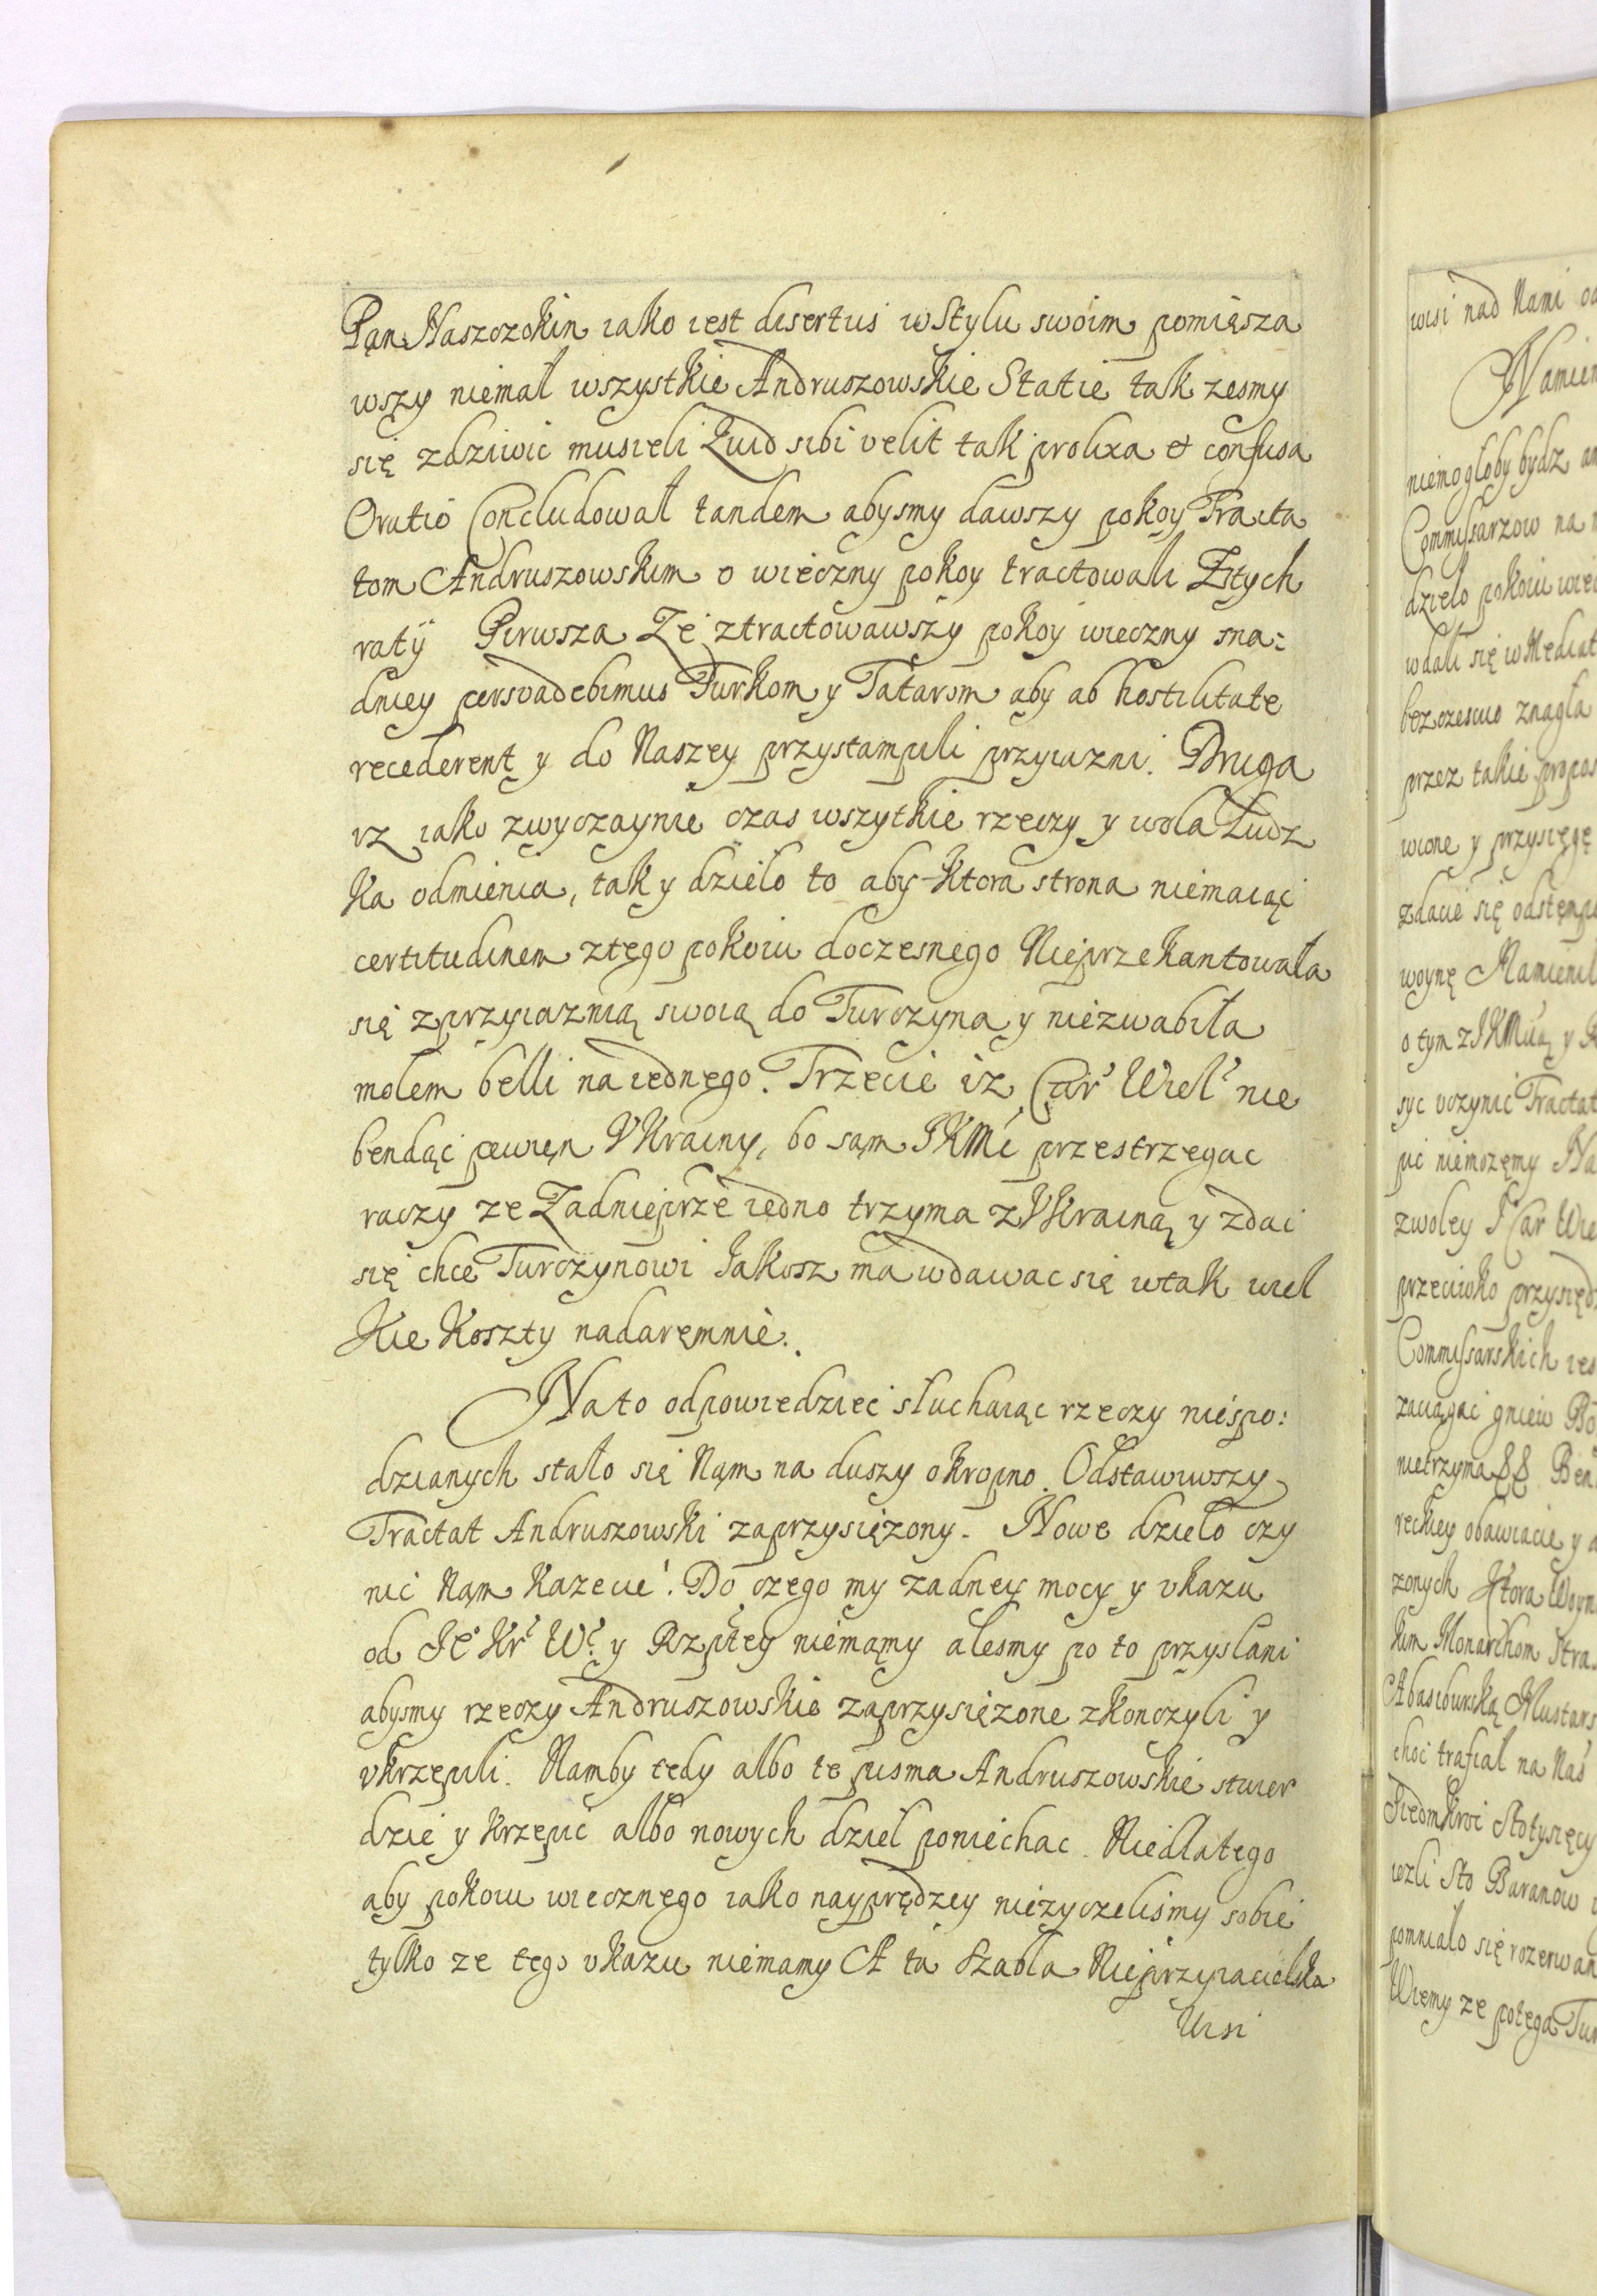 Pąn Naszczokin iako iest disertus w Stylu swoim pomięsza
wszy niemal wszystkie Andruszowskie Statie tak zesmy
się zdziwic musieli Quid sibi velit tak prolixa et confusa
Oratio Concludował tandem abysmy dawszy pokoy Tracta
tom Andruszowskim o wieczny pokoy tractowali Z tych
ratÿ Pirwsza Ze ztractowawszy pokoy wieczny sna:
dniey persvadebimus Turkom y Tatarom aby ab hostilitate
recederent y do Naszey przystampili przyiazni. Druga
vz iako zwyczaynie czas wszytkie rzeczy y wola Ludz
ka odmienia, tak y dzieło to aby ktora strona niemaiąc
certitudinem z tego pokoiu doczesnego Nieprzekantowała
się z przyiaznią swoią do Turczyna y niezwabiła
molem belli na iednego. Trzecie iz Car Wiel nie
bendąc pewien Vkrainy, bo sąm JKMć przestrzegac
raczy ze Zadnieprze iedno trzyma z Vkrainą y zdac
się chce Turczynowi Jakosz ma wdawac się w tak wiel
kie koszty nadaręmnie.
Na to odpowiedziec słuchaiąc rzeczy niespo:
dzianych stało się Nąm na duszy okropno. Odstawiwszy
Tractat Andruszowski zaprzysięzony. Nowe dzieło czy
nic Nąm kazecie. Do czego my zadney mocy y vkazu
od Je Kr W. y Rzpltey niemąmy alesmy po to przysłani
abysmy rzeczy Andruszowskie zaprzysięzone zkonczyli y
vkrzepili. Namby tedy albo te pisma Andruszowskie stwier
dzic y krzepic albo nowych dzieł poniechac. Niedlatego
aby pokoiu wiecznego iako nayprędzey niezyczelismy sobie
tylko ze tego vkazu niemamy A ta Szabla Nieprzyiacielska
Wisi
wisi nad Nami
niemogłoby bydz
Commissarzow na
dzieło pokoiu
wdali się w
bezczesno znagła
przez takie
wione y przysięgę
zdacie się
woynę
o tym z JKMcią y
syc vczynic Tractat
pic niemozęmy
zwoley J Car
przeciwko
Commissarskich
zaciągac gniew
nietrzyma
reckiey obawiacie y
zonych Ktora
kim Monarchom
choc trafiał na Nas
wzli Sto Baranow
pomniało się
Wiemy ze potęga